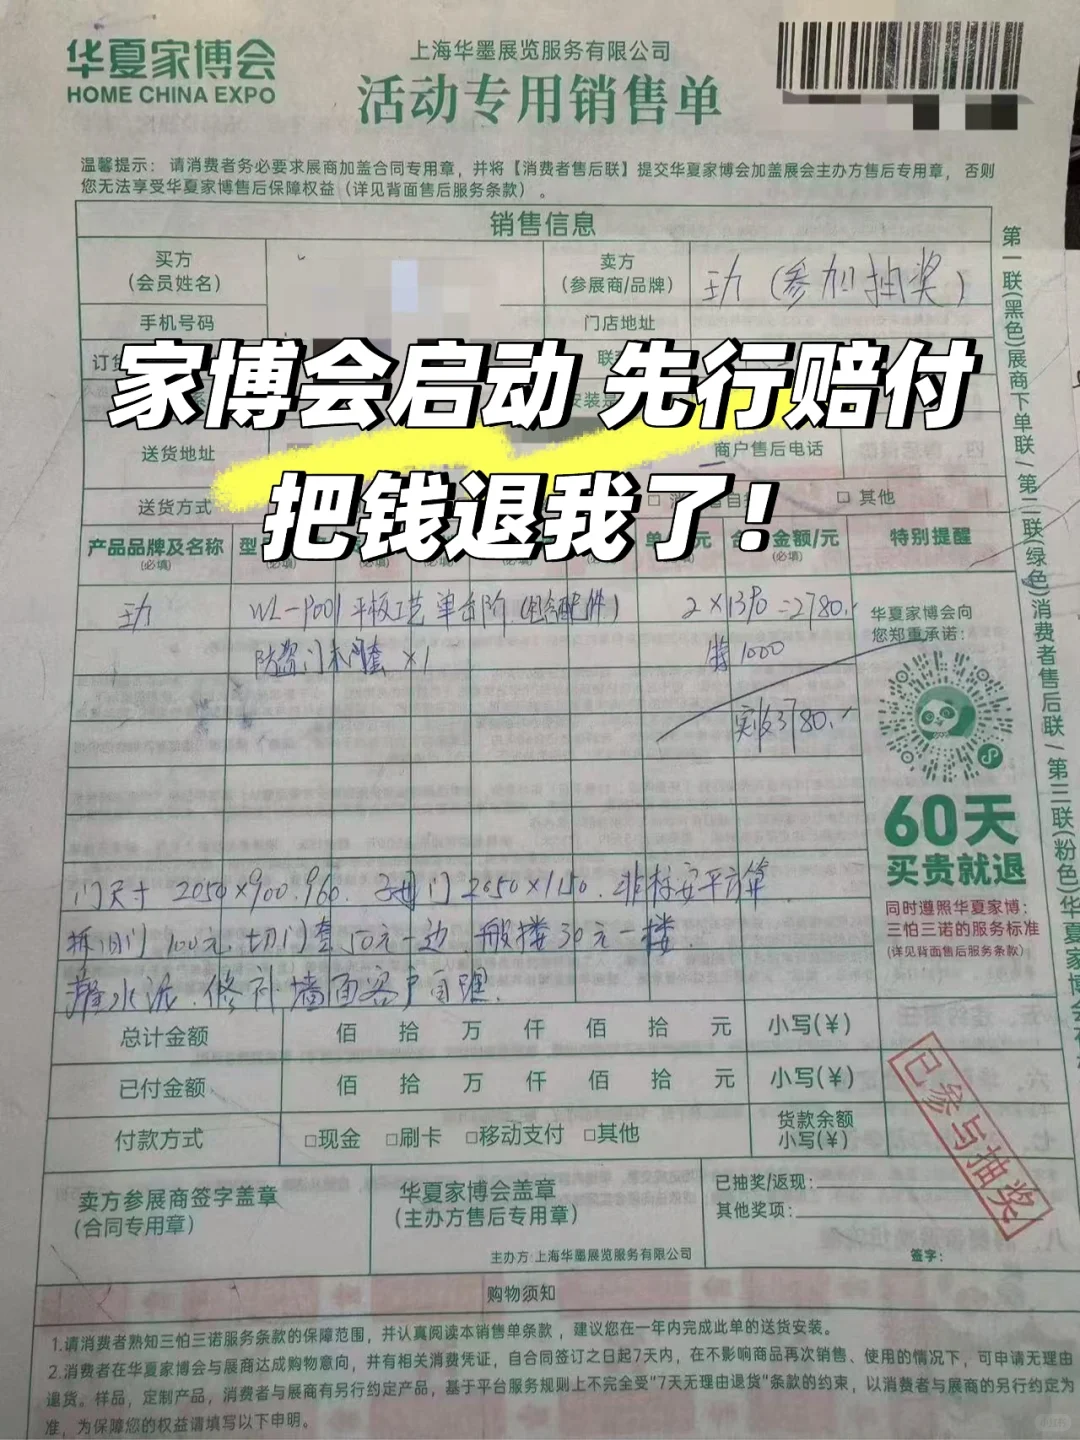 华夏家博会
HOME CHINA EXPO
上海华墨展览服务有限公司
活动专用销售单
温馨提示：请消费者务必要求展商加盖合同专用章，并将【消费者售后联】提交华夏家博会加盖展会主办方售后专用章，否则
您无法享受华夏家博售后保障权益（详见背面售后服务条款）。
销售信息
买方
（会员姓名）
卖方
（参展商/品牌）
（参加抽奖）
手机号码
门店地址
家博会启动 先行赔付
送货地址
商户售后电话
把钱退我了！
送货方式
□ 其他
产品品牌及名称
(必填)
金额/元
(必填)
特别提醒
WL-P001 平板工艺 单台阶
2×1390=2780.
防盗门木门套 ×1
1000
实收3780.
华夏家博会向
您郑重承诺：
60天
买贵就退
同时遵照华夏家博：
三怕三诺的服务标准
(详见背面售后服务条款)
门尺寸 2050×900.960. 子母门 2050×1150. 非标安平方算
拆旧门 100元. 切门套50元一边. 搬楼30元一楼.
灌水泥. 修补墙面客户自理.
总计金额 佰 拾 万 仟 佰 拾 元 小写(¥)
已付金额 佰 拾 万 仟 佰 拾 元 小写(¥)
付款方式 □现金 □刷卡 □移动支付 □其他
货款余额
小写(¥)
已参与抽奖
卖方参展商签字盖章
(合同专用章)
华夏家博会盖章
(主办方售后专用章)
主办方:上海华墨展览服务有限公司
已抽奖/返现：
其他奖项：
签字：
购物须知
1.请消费者熟知三怕三诺服务条款的保障范围，并认真阅读本销售单条款，建议您在一年内完成此单的送货安装。
2.消费者在华夏家博会与展商达成购物意向，并有相关消费凭证，自合同签订之日起7天内，在不影响商品再次销售、使用的情况下，可申请无理由
退货。样品，定制产品，消费者与展商有另行约定产品，基于平台服务规则上不完全受"7天无理由退货"条款的约束，以消费者与展商的另行约定为
准，为保障您的权益请填写以下申明。
第一联(黑色)展商下单联/第二联(绿色)消费者售后联/第三联(粉色)华夏家博会